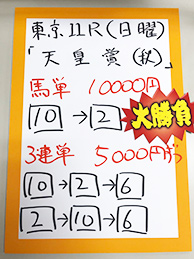 東京11R(日曜)
「天皇賞(秋)
馬単 10000円
10→2
大勝負
3連単 5000円ずつ
10→2→6
2→10→6